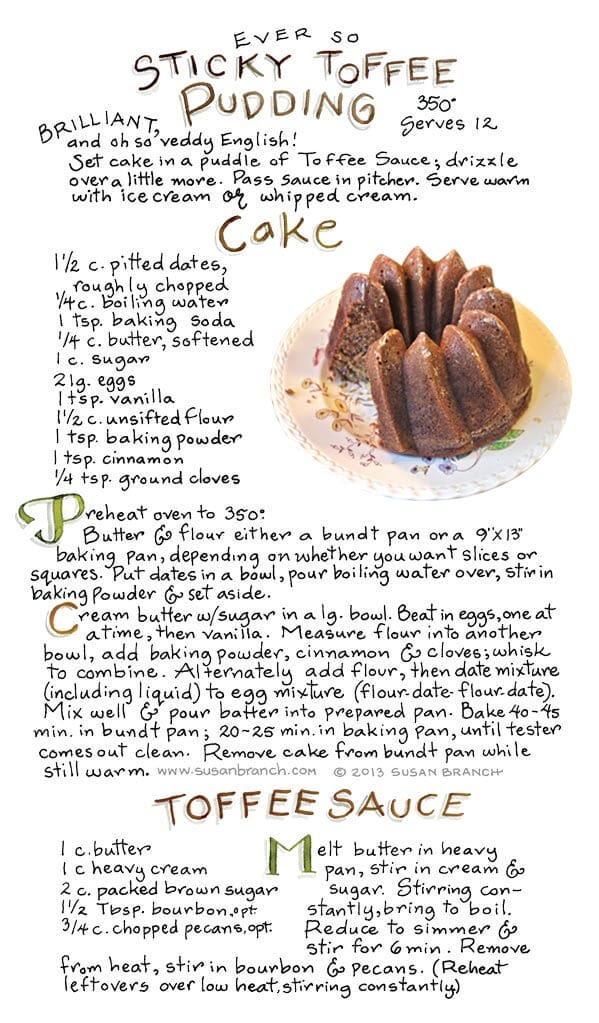 EVER SO
STICKY TOFFEE
PUDDING
350°
Serves 12
BRILLIANT,
and oh so veddy English!
Set cake in a puddle of Toffee Sauce; drizzle
over a little more. Pass sauce in pitcher. Serve warm
with ice cream or whipped cream.
Cake
1 1/2 c. pitted dates,
roughly chopped
1/4 c. boiling water
1 tsp. baking soda
1/4 c. butter, softened
1 c. sugar
2 lg. eggs
1 tsp. vanilla
1 1/2 c. unsifted flour
1 tsp. baking powder
1 tsp. cinnamon
1/4 tsp. ground cloves
Preheat oven to 350°
Butter & flour either a bundt pan or a 9"X13"
baking pan, depending on whether you want slices or
squares. Put dates in a bowl, pour boiling water over, stir in
baking powder & set aside.
Cream butter w/sugar in a lg. bowl. Beat in eggs, one at
a time, then vanilla. Measure flour into another
bowl, add baking powder, cinnamon & cloves; whisk
to combine. Alternately add flour, then date mixture
(including liquid) to egg mixture (flour-date-flour-date).
Mix well & pour batter into prepared pan. Bake 40-45
min. in bundt pan; 20-25 min. in baking pan, until tester
comes out clean. Remove cake from bundt pan while
still warm. www.susanbranch.com © 2013 SUSAN BRANCH
TOFFEE SAUCE
1 c. butter
1 c heavy cream
2 c. packed brown sugar
1 1/2 Tbsp. bourbon, opt.
3/4 c. chopped pecans, opt.
Melt butter in heavy
pan, stir in cream &
sugar. Stirring con-
stantly, bring to boil.
Reduce to simmer &
stir for 6 min. Remove
from heat, stir in bourbon & pecans. (Reheat
leftovers over low heat, stirring constantly)